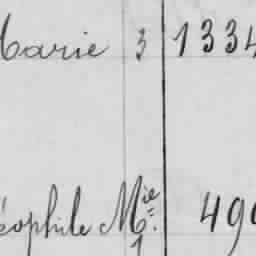 Marie 3 1334
éophile Mie 490
1